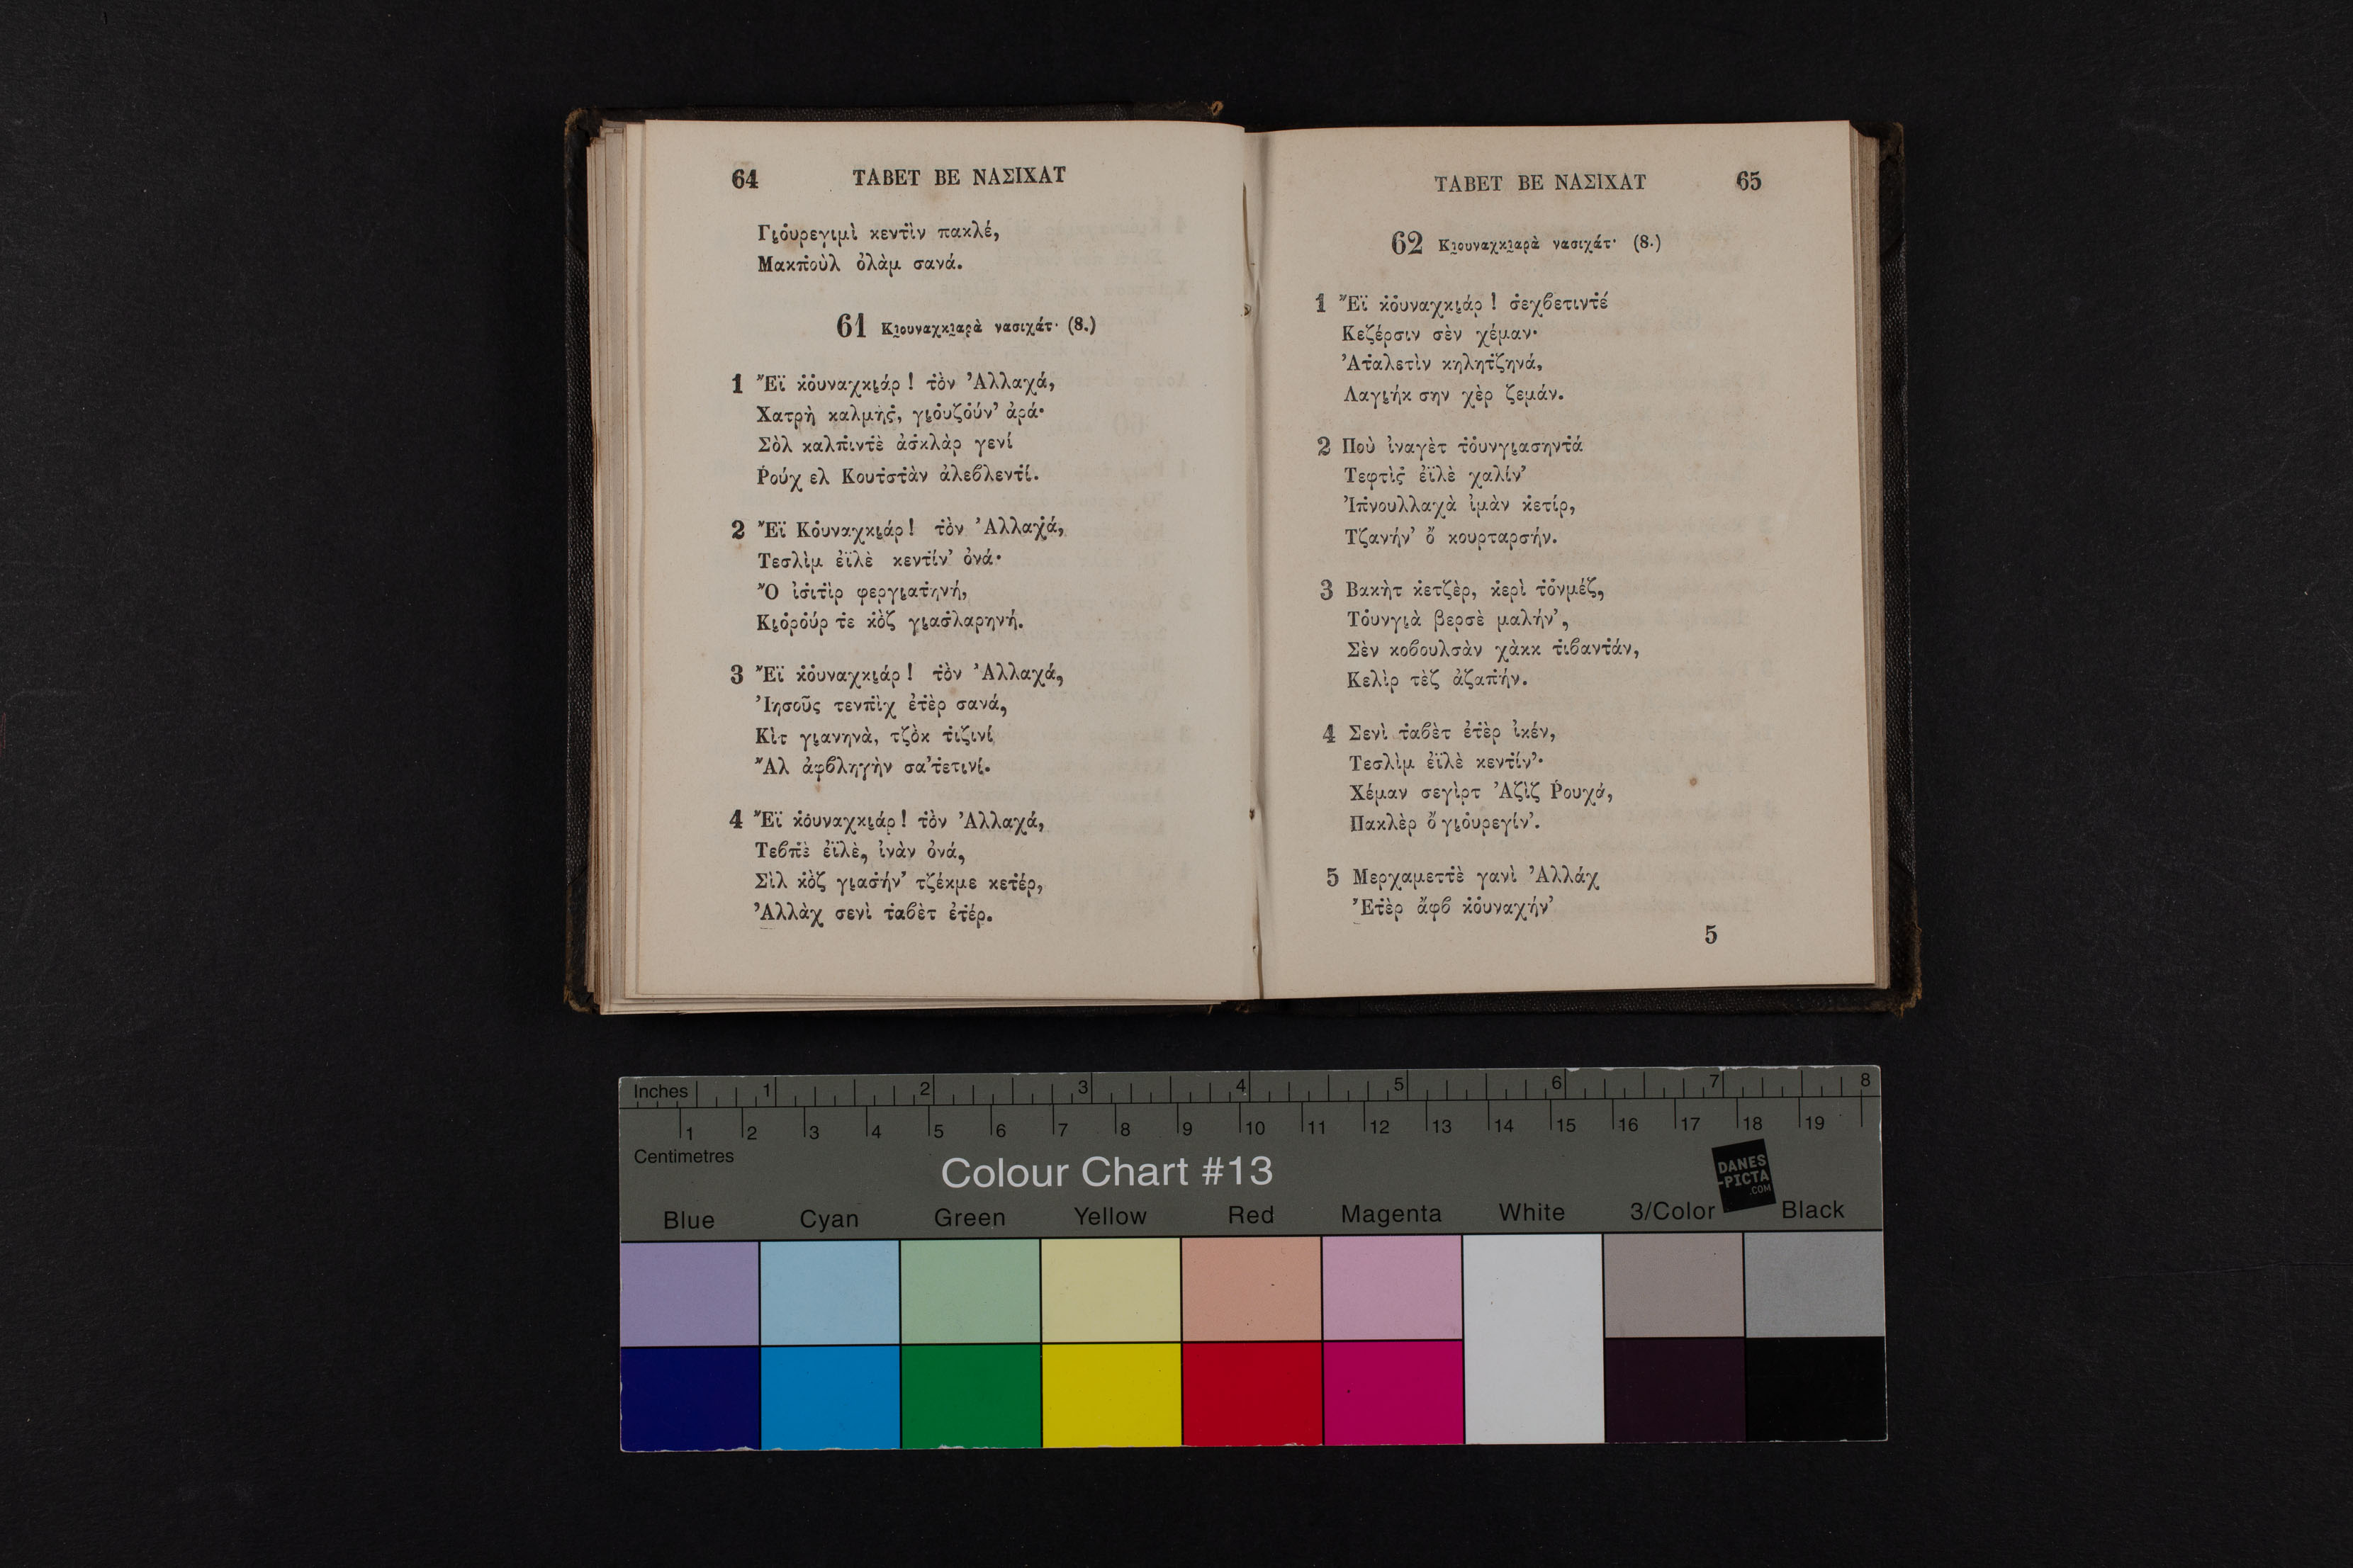 64 ΤΑΒΕΤ ΒΕ ΝΑΣΙΧΑΤ
Γι̰ὄυρεγιμὶ κεντ̇ὶν πακλέ,
Μακπ̇οὺλ ὀλὰμ σανά.
61 Κι̰ουναχκι̰αρὰ νασιχάτ· (8.)
1 Ἔϊ κ̇ȯυναχκι̰άρ! τ̇ὸν Ἀλλαχά,
Χατρὴ καλμής̇, γι̰ȯυζȯύν’ ἀρά·
Σὸλ καλπ̇ιντ̇ὲ ἀσ̇κλὰρ γενί
Ῥούχ ελ Κουτ̇στ̇ὰν ἀλεβλεντ̇ί.
2 Ἔϊ Κȯυναχκι̰άρ! τ̇ὸν Ἀλλαχά,
Τεσλὶμ ἐϊλὲ κεντ̇ίν’ ὀνά·
Ὄ ἰσ̇ιτ̇ὶρ φεργι̰ατ̇ηνή,
Κι̰ȯρȯύρ τ̇ε κ̇ȯ̀ζ γι̰ασ̇λαρηνή.
3 Ἔϊ κ̇ȯυναχκι̰άρ! τ̇ὸν Ἀλλαχά,
Ἰησοῦς τενπ̇ὶχ ἐτ̇ὲρ σανά,
Κὶτ γι̰ανηνὰ, τζ̇ὸκ τ̇ιζινί
Ἄλ ἀφβληγὴν σα’τ̇ετινί.
4 Ἔϊ κ̇ȯυναχκι̰άρ! τ̇ὸν Ἀλλαχά,
Τεβπ̇ὲ ἐϊλὲ, ἰνὰν ὀνά,
Σὶλ κ̇ȯ̀ζ γι̰ασ̇ήν’ τζέκμε κετ̇έρ,
Ἀλλὰχ σενὶ τ̇αβὲτ ἐτ̇έρ.
ΤΑΒΕΤ ΒΕ ΝΑΣΙΧΑΤ 65
62 Κι̰ουναχκι̰αρὰ νασιχάτ· (8.)
1 Ἔϊ κ̇ȯυναχκι̰άρ! σ̇εχβετιντ̇έ
Κεζέρσιν σὲν χέμαν·
Ἀτ̇αλετὶν κηλητ̇ζηνά,
Λαγι̰ήκ σην χὲρ ζεμάν.
2 Ποὺ ἰναγὲτ τ̇ȯυνγι̰ασηντ̇ά
Τεφτὶς̇ ἐϊλὲ χαλίν’
Ἰπ̇νουλλαχὰ ἰμὰν κ̇ετίρ,
Τζανήν’ ὄ κουρταρσήν.
3 Βακὴτ κ̇ετζὲρ, κ̇ερὶ τ̇ȯνμέζ,
Τȯυνγι̰ὰ βερσὲ μαλήν’,
Σὲν κοβουλσὰν χὰκκ τ̇ιβαντ̇άν,
Κελὶρ τὲζ ἀζαπ̇ήν.
4 Σενὶ τ̇αβὲτ ἐτ̇ὲρ ἰκέν,
Τεσλὶμ ἐϊλὲ κεντ̇ίν’·
Χέμαν σεγὶρτ Ἀζὶζ Ῥουχά,
Πακλὲρ ὄ γι̰ȯυρεγίν’.
5 Μερχαμεττ̇ὲ γανὶ Ἀλλάχ
Ἐτ̇ὲρ ἄφβ κ̇ȯυναχήν’
5
Inches 1 2 3 4 5 6 7 8
1 2 3 4 5 6 7 8 9 10 11 12 13 14 15 16 17 18 19
Centimetres
Colour Chart #13
DANES
-PICTA
.COM
Blue Cyan Green Yellow Red Magenta White 3/Color Black